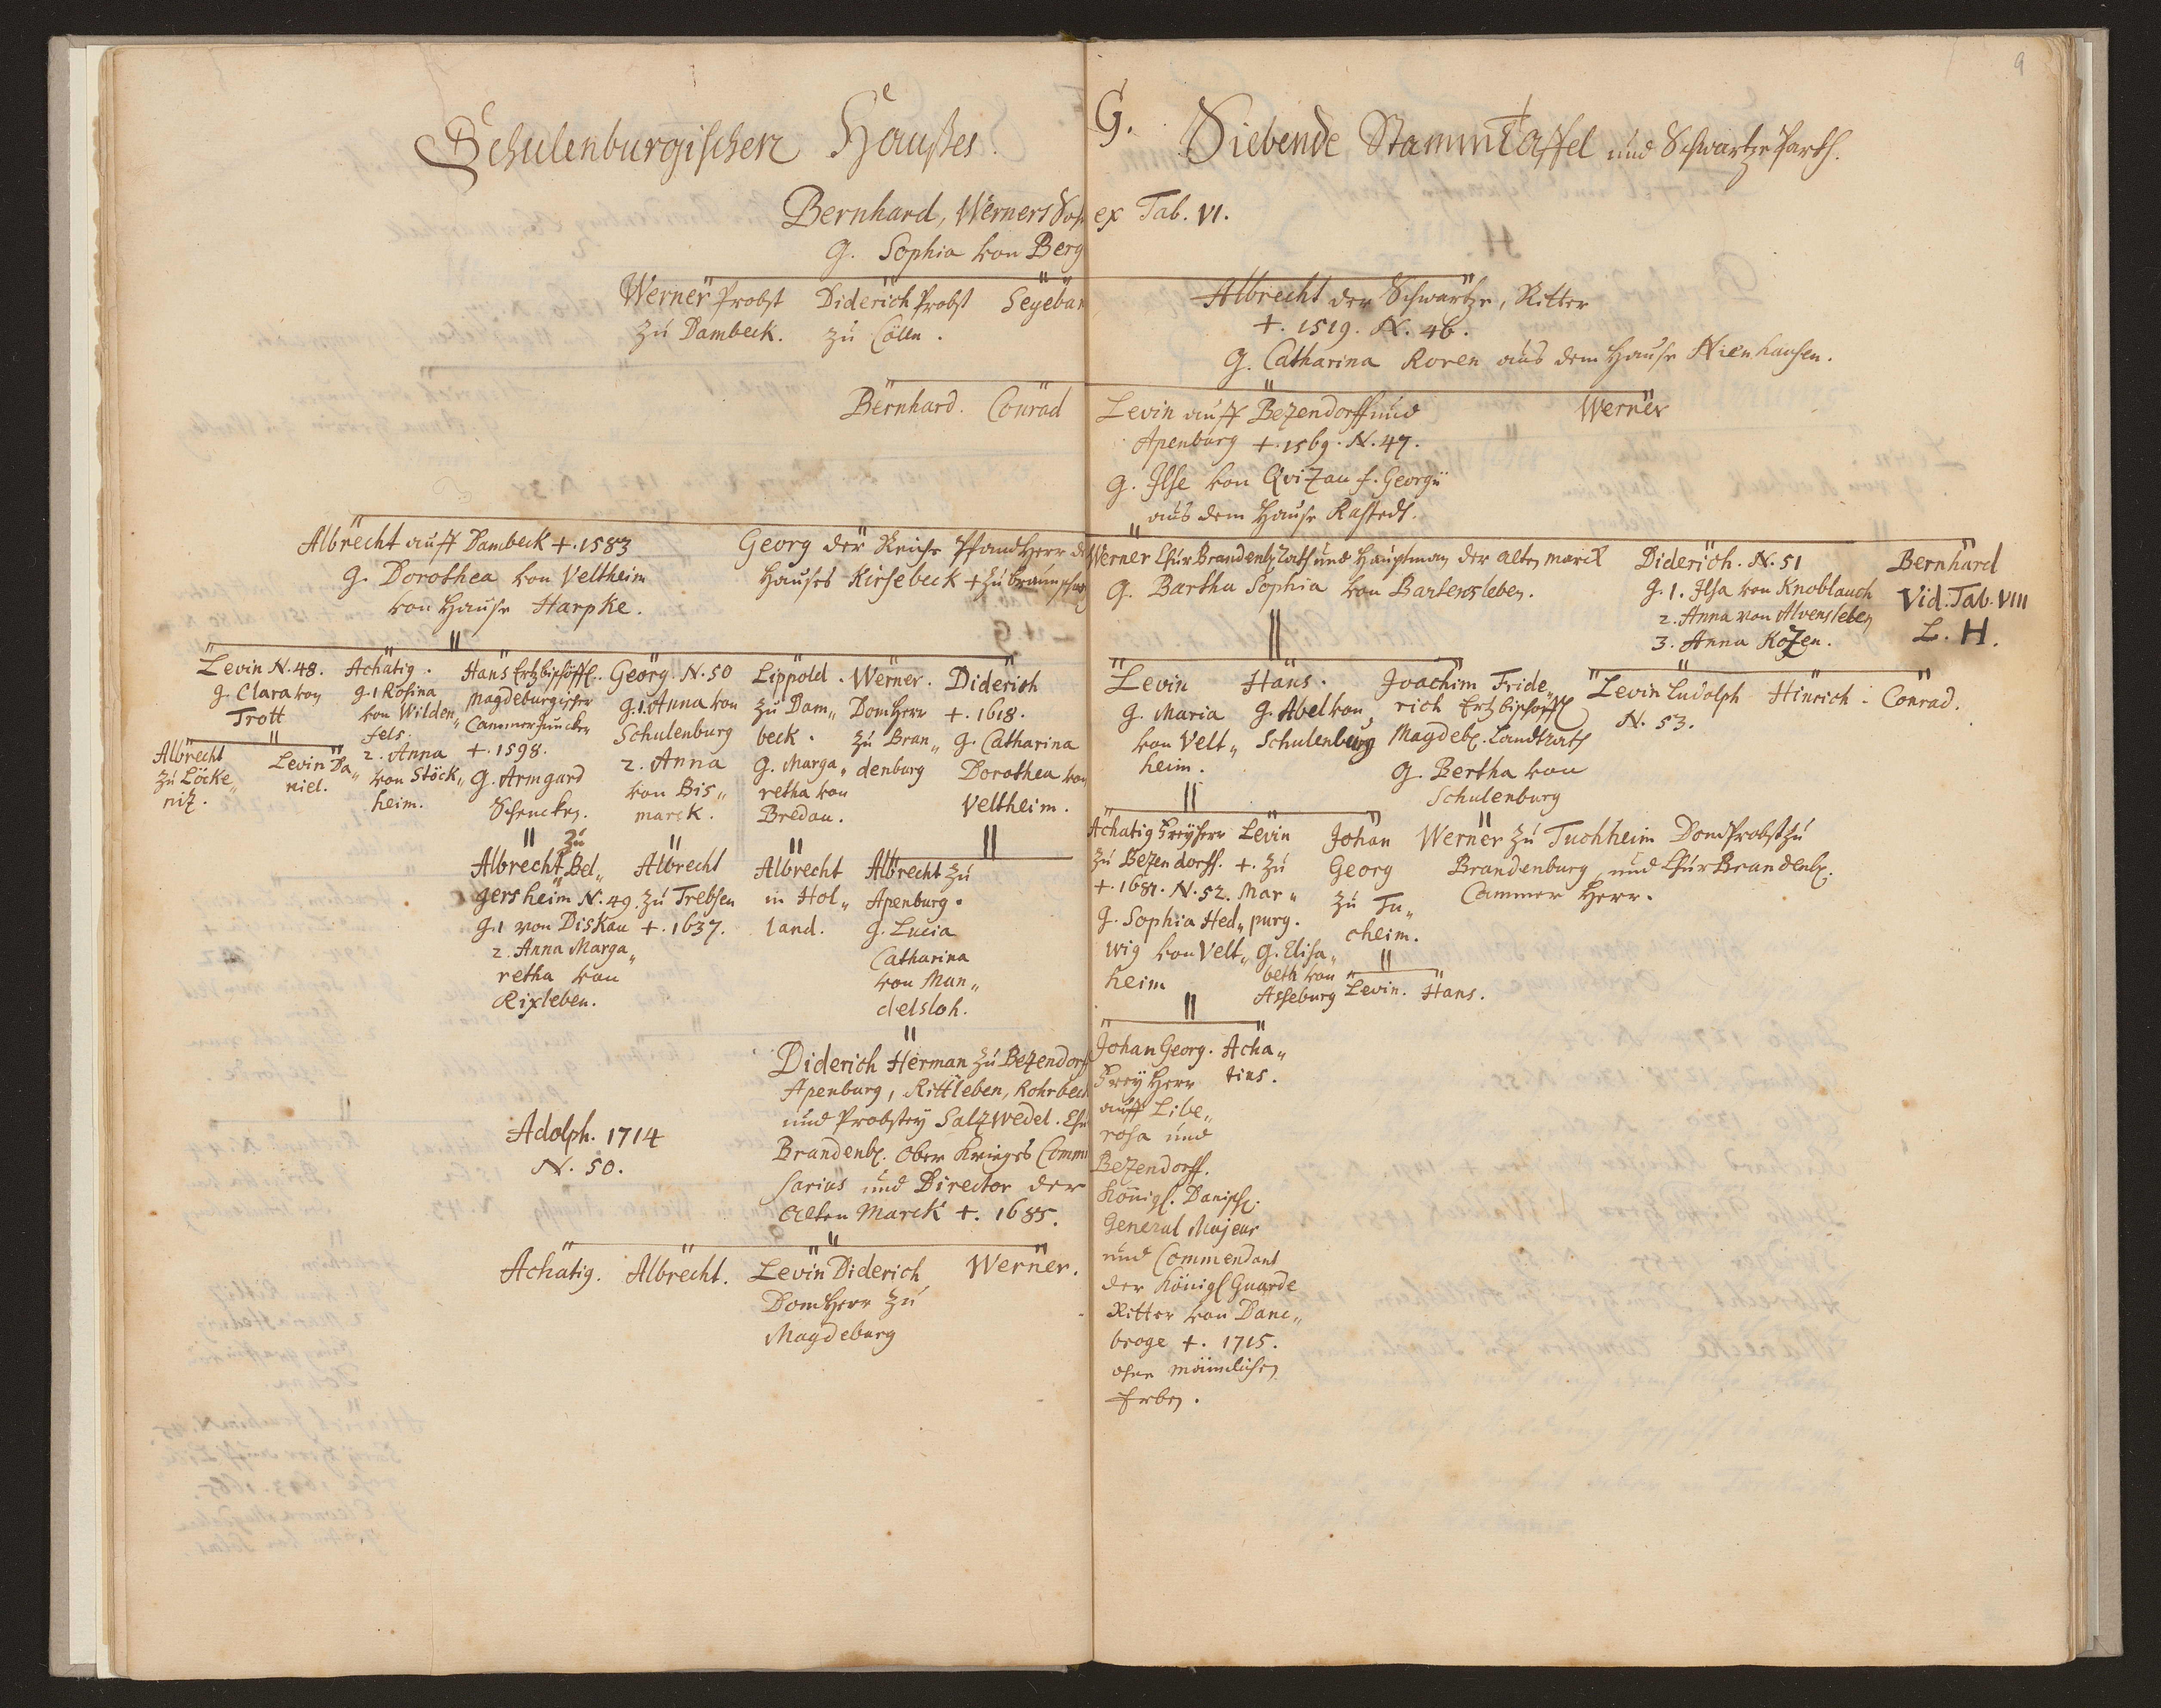 9
G.
Schulenburgischen Haußes. Siebende StammTaffel und Schwartze Parth.
Bernhard, Werners Sohn ex Tab. VI.
G. Sophia von Berg
Werner Probst
zu Dambeck.
Diderich Probst
zu Cölln.
Segeban
Albrecht der Schwartze, Ritter
+. 1519. N. 46.
G. Catharina Roren aus dem Hause Nienhausen.
Bernhard. Conrad
Levin auff Bezendorff und
Apenburg +. 1569. N. 47.
G. Ilse von Qvizau f. Georgii
aus dem Hause Rastedt.
Werner
Albrecht auff Dambeck +. 1583
G. Dorothea von Veltheim
von Hause Harpke.
Georg der Reiche PfandHerr des
Hauses Kirsebeck + zu Braunschweig
Werner ChurBrandenb. Rath und Hauptman der alten marck
G. Bartha Sophia von Bartensleben.
Diderich. N. 51
G. 1. Ilsa von Knoblauch
2. Anna von Alvensleben
3. Anna Kozen.
Bernhard
Vid. Tab. VIII
L. H.
Levin N. 48.
G. Clara von
Trott
Achatig.
G. 1 Rosina
von Wilden„
fels.
2. Anna
von Stöck„
heim.
Hans Ertzbischöffl.
Magdeburgischer
CammerJuncker
+. 1598.
G. Armgard
Schencken.
Georg. N. 50
G. 1. Anna von
Schulenburg
2. Anna
von Bis„
marck.
Lippold.
zu Dam„
beck.
G. Marga„
retha von
Bredau.
Werner.
DomHerr
zu Bran„
denburg
Diderich
+. 1618.
G. Catharina
Dorothea von
Veltheim.
Levin
G. Maria
von Velt„
heim.
Hans.
G. Abel von
Schulenburg
Joachim Fride„
rich Ertzbischoffl
Magdeb. Landtrath
G. Bertha von
Schulenburg
Levin Ludolph
N. 53.
Hinrich. Conrad.
Albrecht
zu Löcke„
niz.
Levin Da„
niel.
Albrecht zu Bel„
gersheim N. 49.
G. 1 von Diskau
2. Anna Marga„
retha von
Rixleben.
Albrecht
zu Trebsen
+. 1637.
Albrecht
in Hol„
land.
Albrecht zu
Apenburg.
G. Lucia
Catharina
von Man„
delsloh.
Achatig Freyherr
zu Bezendorff.
+. 1681. N. 52.
G. Sophia Hed„
wig von Velt„
heim
Levin
+. zu
Mar„
purg.
G. Elisa„
beth von
Asseburg
Johan
Georg
zu Tu„
cheim.
Werner zu Tuchheim DomProbst zu
Brandenburg und ChurBrandenb.
Cammer Herr.
Levin. Hans.
Diderich Herman zu Bezendorf
Apenburg, Rittleben, Rohrbeck
und Probstey Salzwedel. Chu
Brandenb. Ober Krieges Commi
sarius und Director der
Alten Marck +. 1685.
Adolph. 1714
N. 50.
Johan Georg.
Frey Herr
auff Libe„
rosa und
Bezendorff.
Königl. Dänisch.
General Majeur
und Commendant
der Königl Guarde
Ritter von Dane„
broge +. 1715.
ohne männlichen
Erben.
Acha„
tius.
Achatig. Albrecht. Levin Diderich
DomHerr zu
Magdeburg
Werner.